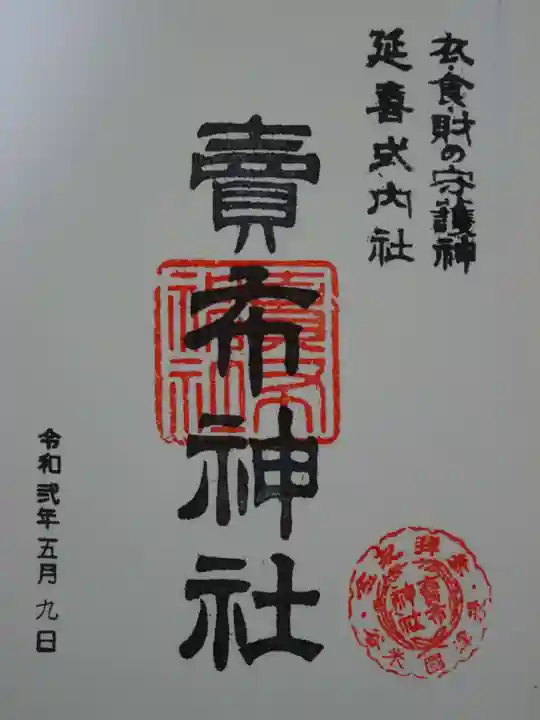 衣・食・財の守護神
延喜式内社
賣布神社
令和弐年五月九日
賣布
神社